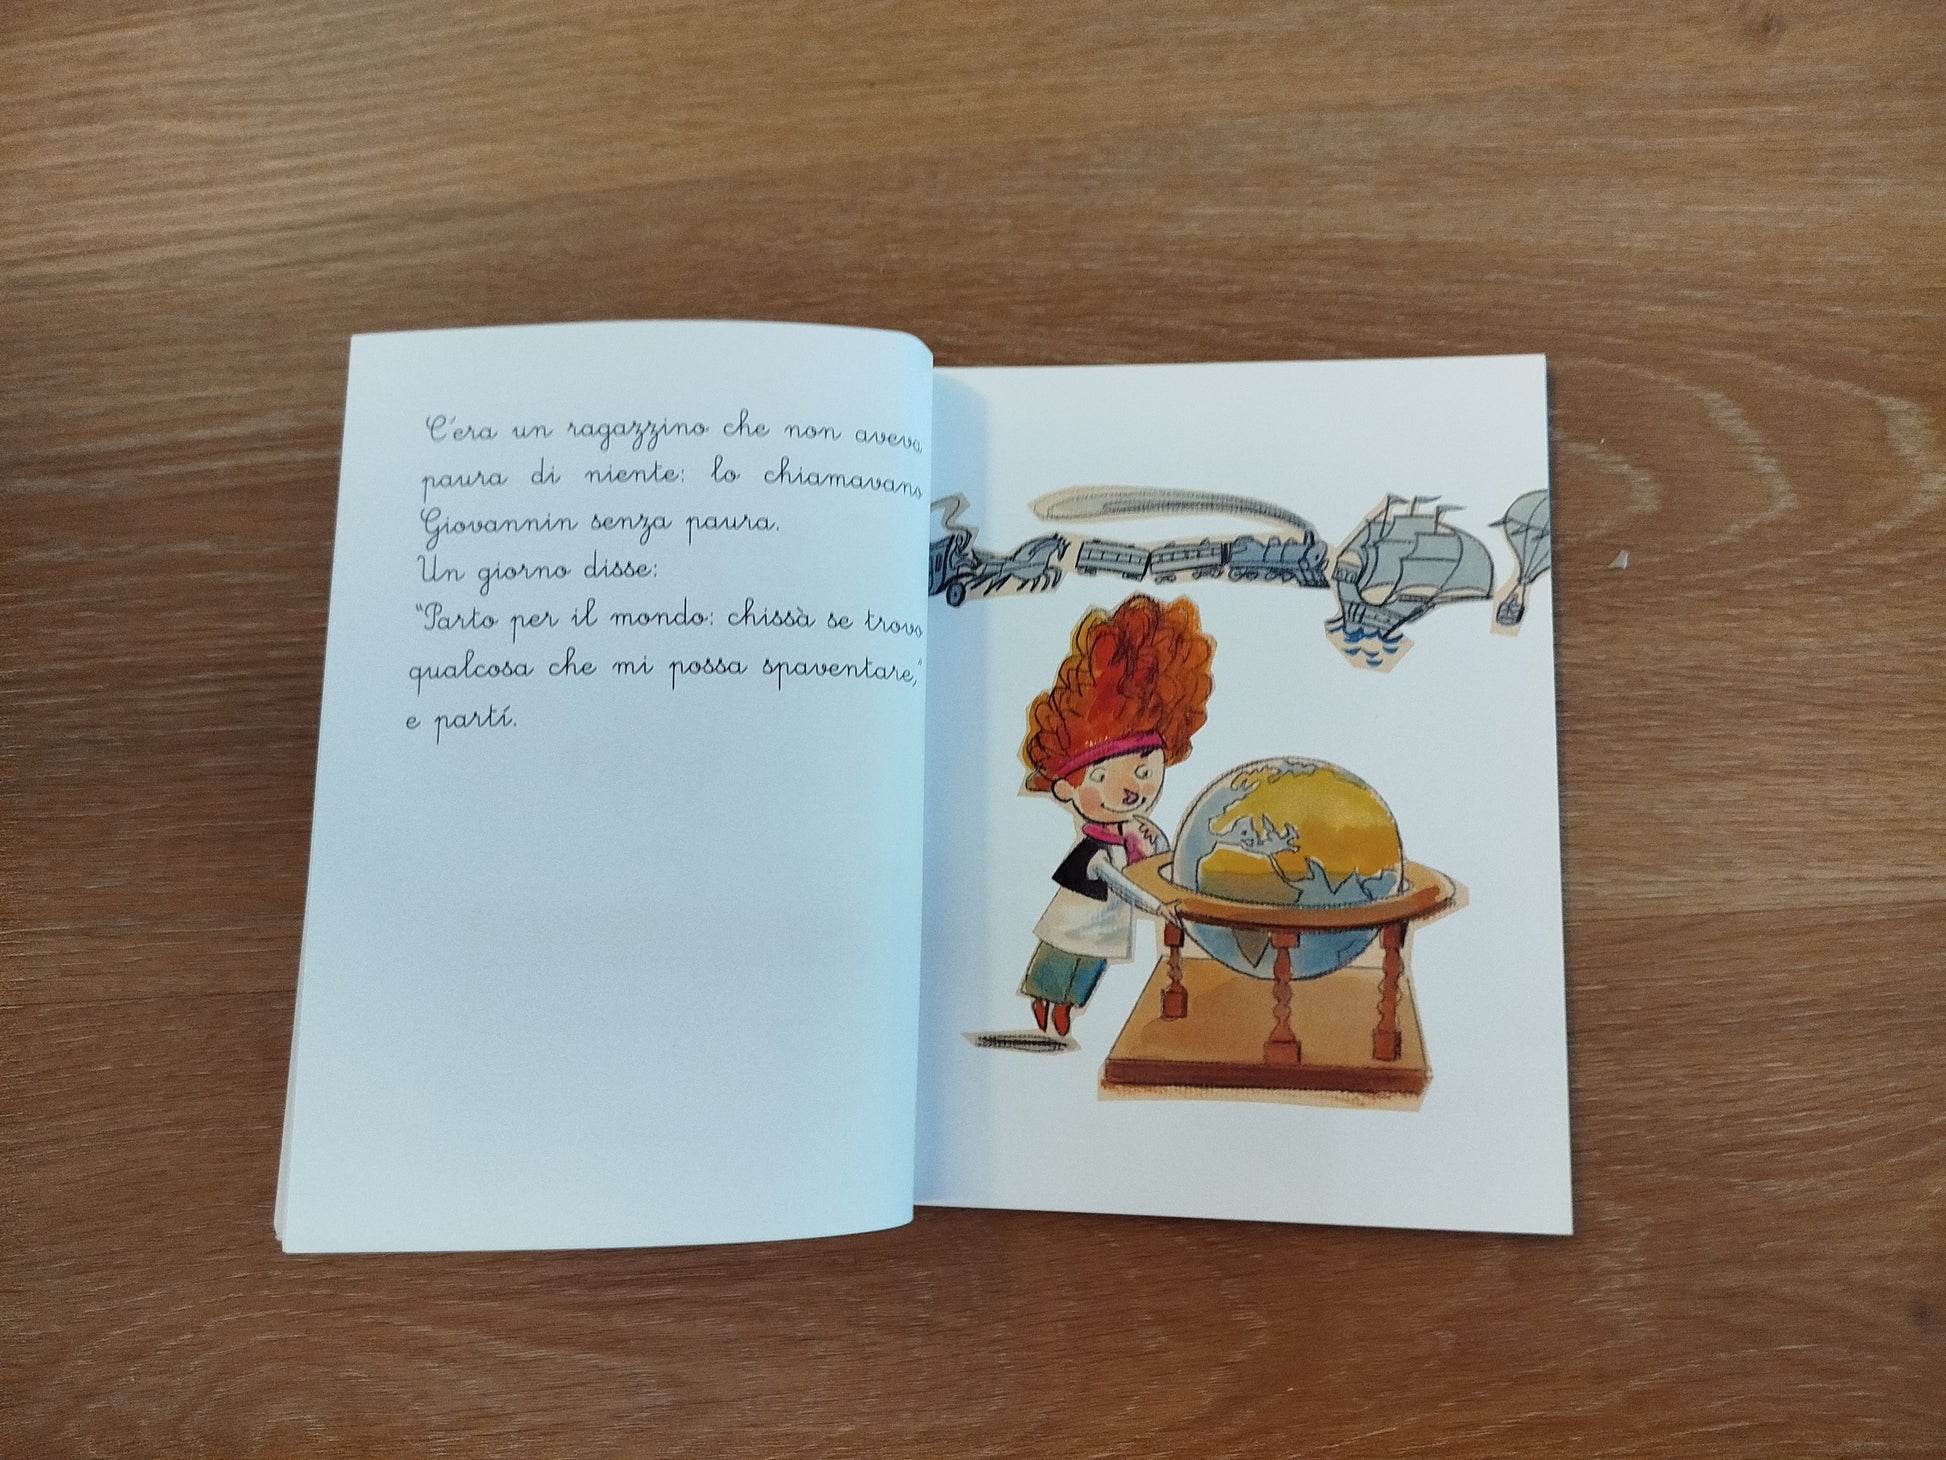 C'era un ragazzino che non aveva
paura di niente: lo chiamavano
Giovannin senza paura.
Un giorno disse:
"Parto per il mondo: chissà se trovo
qualcosa che mi possa spaventare,"
e partí.